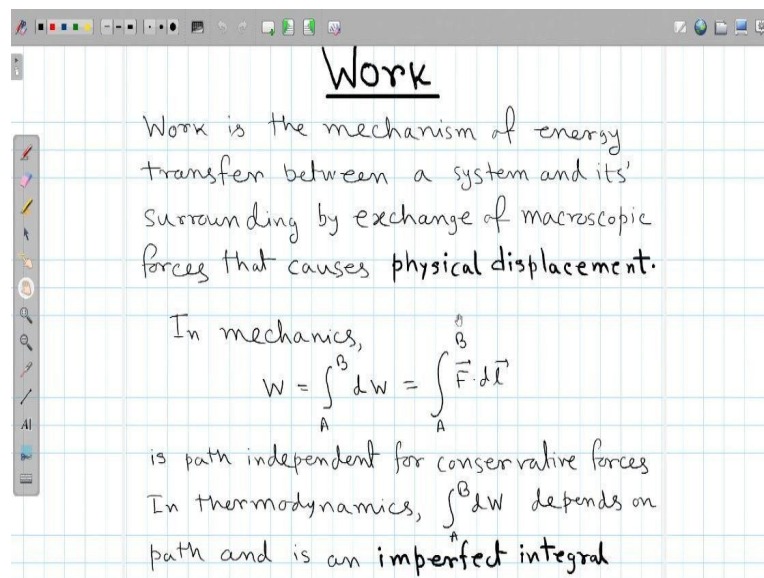 Work
Work is the mechanism of energy
transfer between a system and its'
surrounding by exchange of macroscopic
forces that causes physical displacement.
In mechanics,
W = ∫_A^B dW = ∫_A^B F⃗·dl⃗
is path independent for conservative forces
In thermodynamics, ∫_A^B dW depends on
path and is an imperfect integral
AI